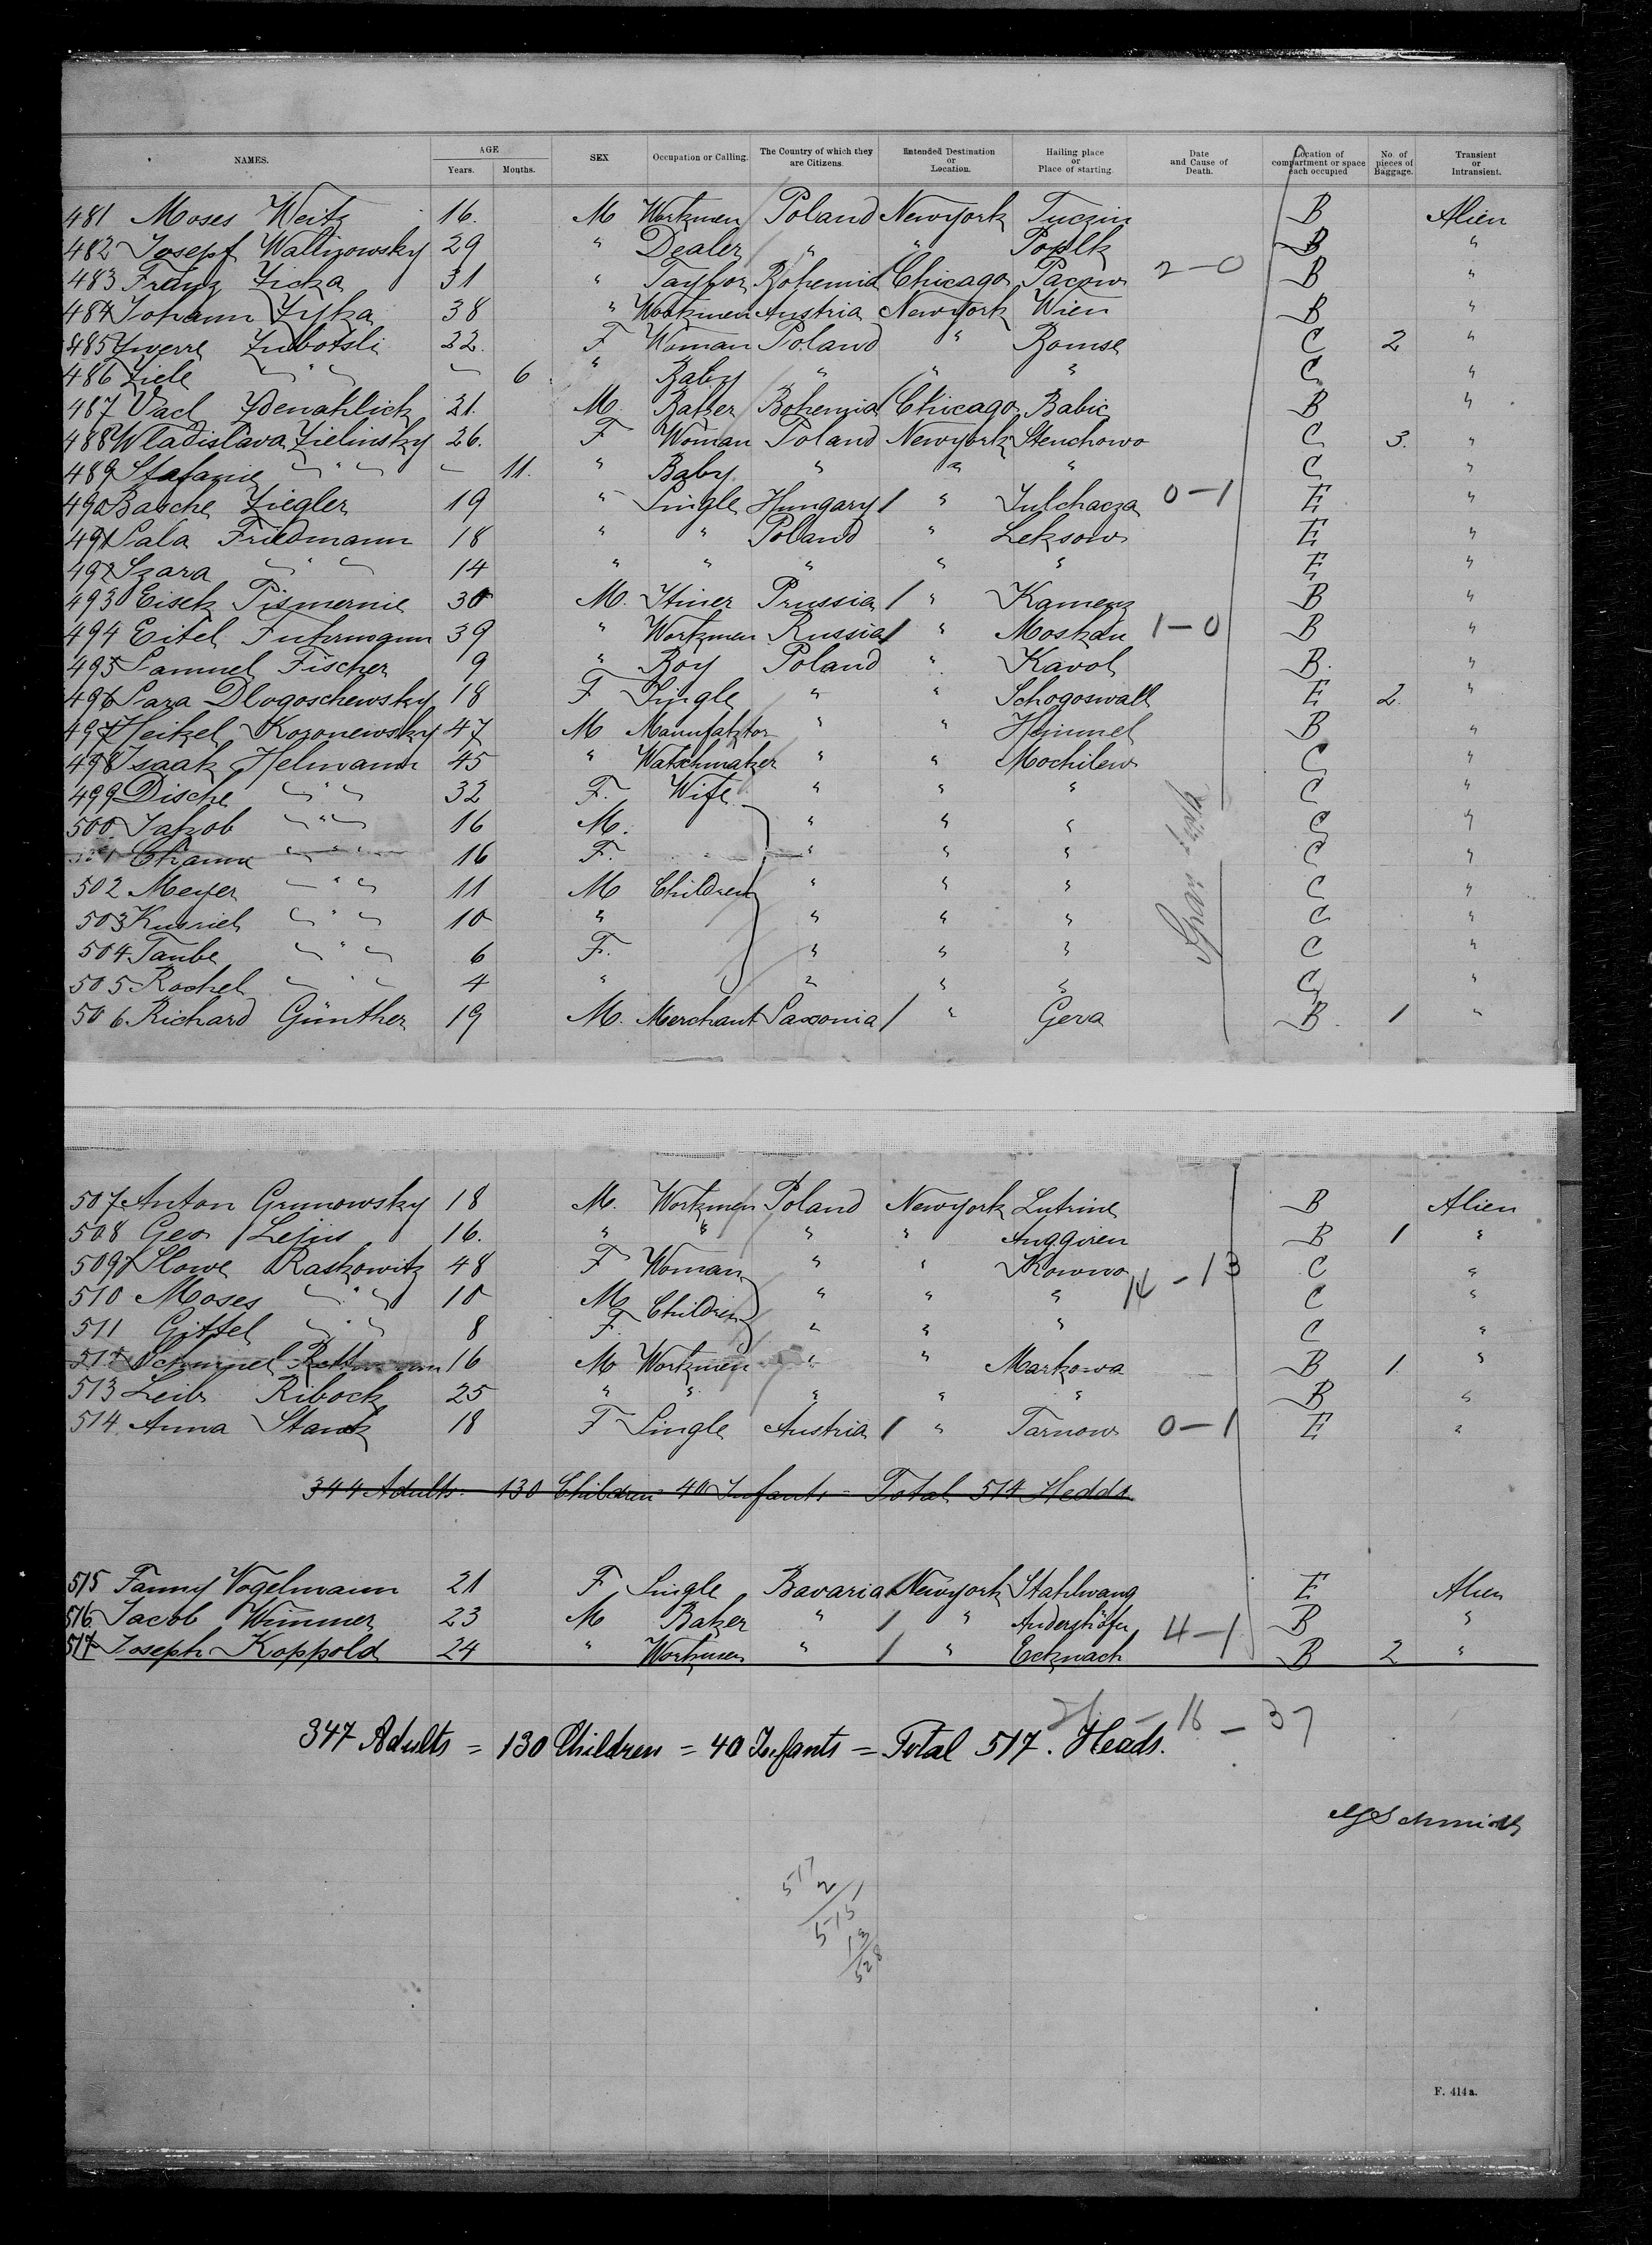 NAMES. AGE Years. Months. SEX Occupation or Calling. The Country of which they are Citizens. Intended Destination or Location. Hailing place or Place of starting. Date and Cause of Death. Location of compartment or space each occupied No. of pieces of Baggage. Transient or Intransient.
481 Moses Weitz 16. M Workmen Poland Newyork Tuczin B Alien
482 Josepf Wallizowsky 29 " Dealer " " B "
483 Franz Zicka 31 " Taylor Bohemia Chicago Pacow 2-0 B "
484 Johann Zyka 38 " Workmen Austria Newyork Wien B "
485 22. F Woman Poland " C 2 "
486 Ziele " 6. " Baby " " " C "
487 Vacl 21. M. Baker Bohemia Chicago Babic B "
488 Wladislava Zielinsky 26. F Woman Poland Newyork Stenchowo C 3. "
489 Stafanie " 11. " Baby. " " " C "
490 Basche Ziegler 19 " Single Hungary / " 0-1 E "
491 Sala Friedmann 18 " " Poland " Leksow E "
492 Szara " 14 " " " " " E "
493 Eisek Pismernie 30 M. Prussia / " Kamenz B "
494 Eitel Fuhrmann 39 " Workmen Russia / " Moskau 1-0 B "
495 Samuel Fischer 9 " Boy Poland " Kavol B. "
496 Sara Dlogoschewsky 18 F Single " " Schogoswall E 2. "
497 Heikel Kozonewsky 47 M Manufaktor " " Himmel B "
498 Isaak Helmann 45 " Watschmaker " " Mochilew C "
499 Dische " 32 F. Wife " " " C "
500 Jakob " 16 M. " " " C "
Channe " 16 F. " " " C "
502 Meyer " 11 M Children " " " C "
503 Kusriel " 10 " " " " C "
504 Taube " 6 F. " " " C "
505 Rochel " 4 " " " " C "
506 Richard Günther 19 M. Merchant Saxonia / " Gera B. 1 "
507 Anton Grunowsky 18 M. Workmen Poland Newyork Lutrine B Alien
508 Geo Lejus 16. " " " " Auggiren B 1 "
509 Slowe Raskowitz 48 F Woman " " Kowno 14-13 C "
510 Moses " 10 M Children " " " C "
511 Gittel " 8 F. " " " C "
512 Schmuel 16 M Workmen " " Markowa B 1. "
513 Leib Ribock 25 " " " " " B "
514. Anna Stank 18 F Single Austria / " Tarnow 0-1 E "
344 Adults - 130 Children 40 Infants - Total 514 Hedds
515 Fanny Vogelmann 21 F Single Bavaria Newyork Stahlwang E Alien
516. Jacob Wimmer 23 M Baker " / " Andershöfen 4-1 B "
517 Joseph Koppold 24 " Workmen " / " Ecknach B 2 "
16 - 37
347 Adults = 130 Children = 40 Infants = Total 517. Heads.
Schmidt
517
2
515
13
528
F. 414 a.